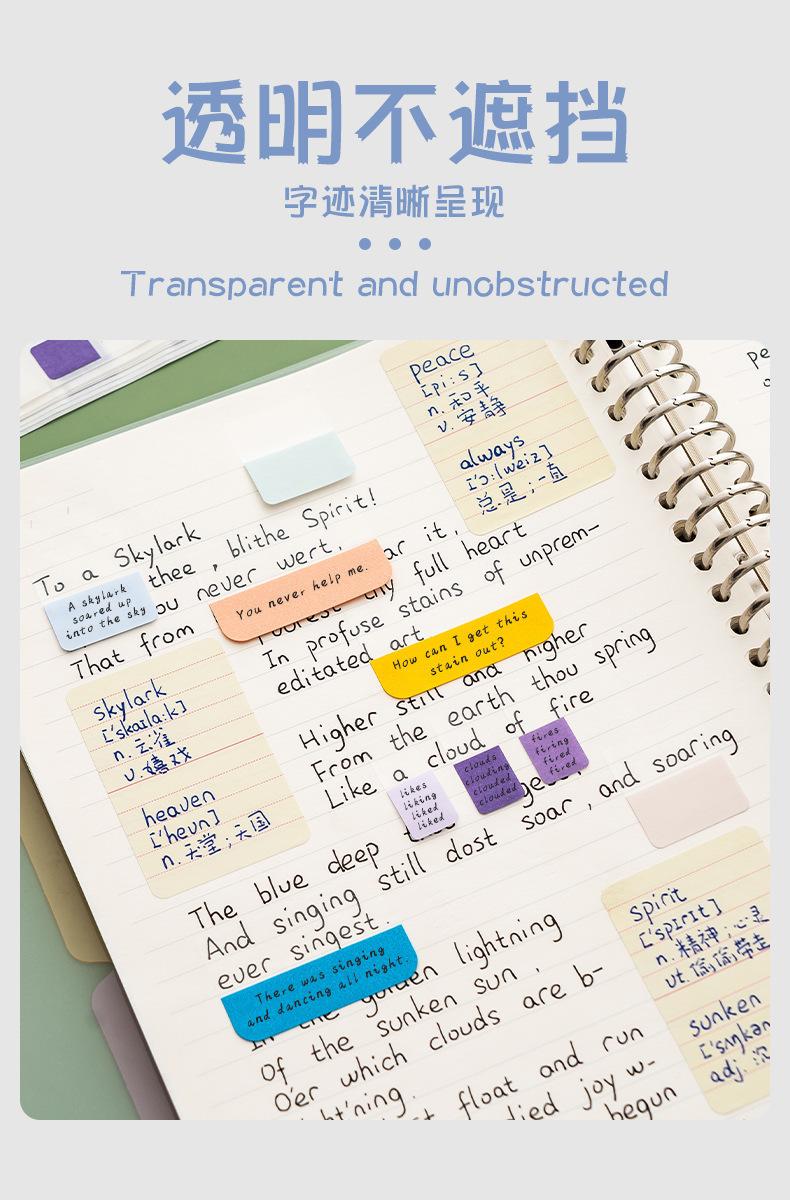 透明不遮挡
字迹清晰呈现
Transparent and unobstructed
peace
[pi:s]
n. 和平
v. 安静
always
['ɔ:lweiz]
总是;一直
To a Skylark
thee, blithe Spirit!
never wert,
That from
ar it,
full heart
In profuse stains of unprem-
editated art
A skylark
soared up
into the sky
You never help me.
How can I get this
stain out?
Higher still and higher
From the earth thou spring
Like a cloud of fire
skylark
['skaila:k]
n. 云雀
v. 嬉戏
heaven
['hevn]
n. 天堂;天国
likes
liking
liked
liked
clouds
clouding
clouded
clouded
fires
firing
fired
fired
The blue deep
And singing still dost soar, and soaring
ever singest.
There was singing
and dancing all night.
golden lightning
Of the sunken sun,
O'er which clouds are b-
ht'ning.
float and run
joy w-
begun
spirit
['spɪrɪt]
n. 精神,心灵
vt. 偷偷带走
sunken
adj.